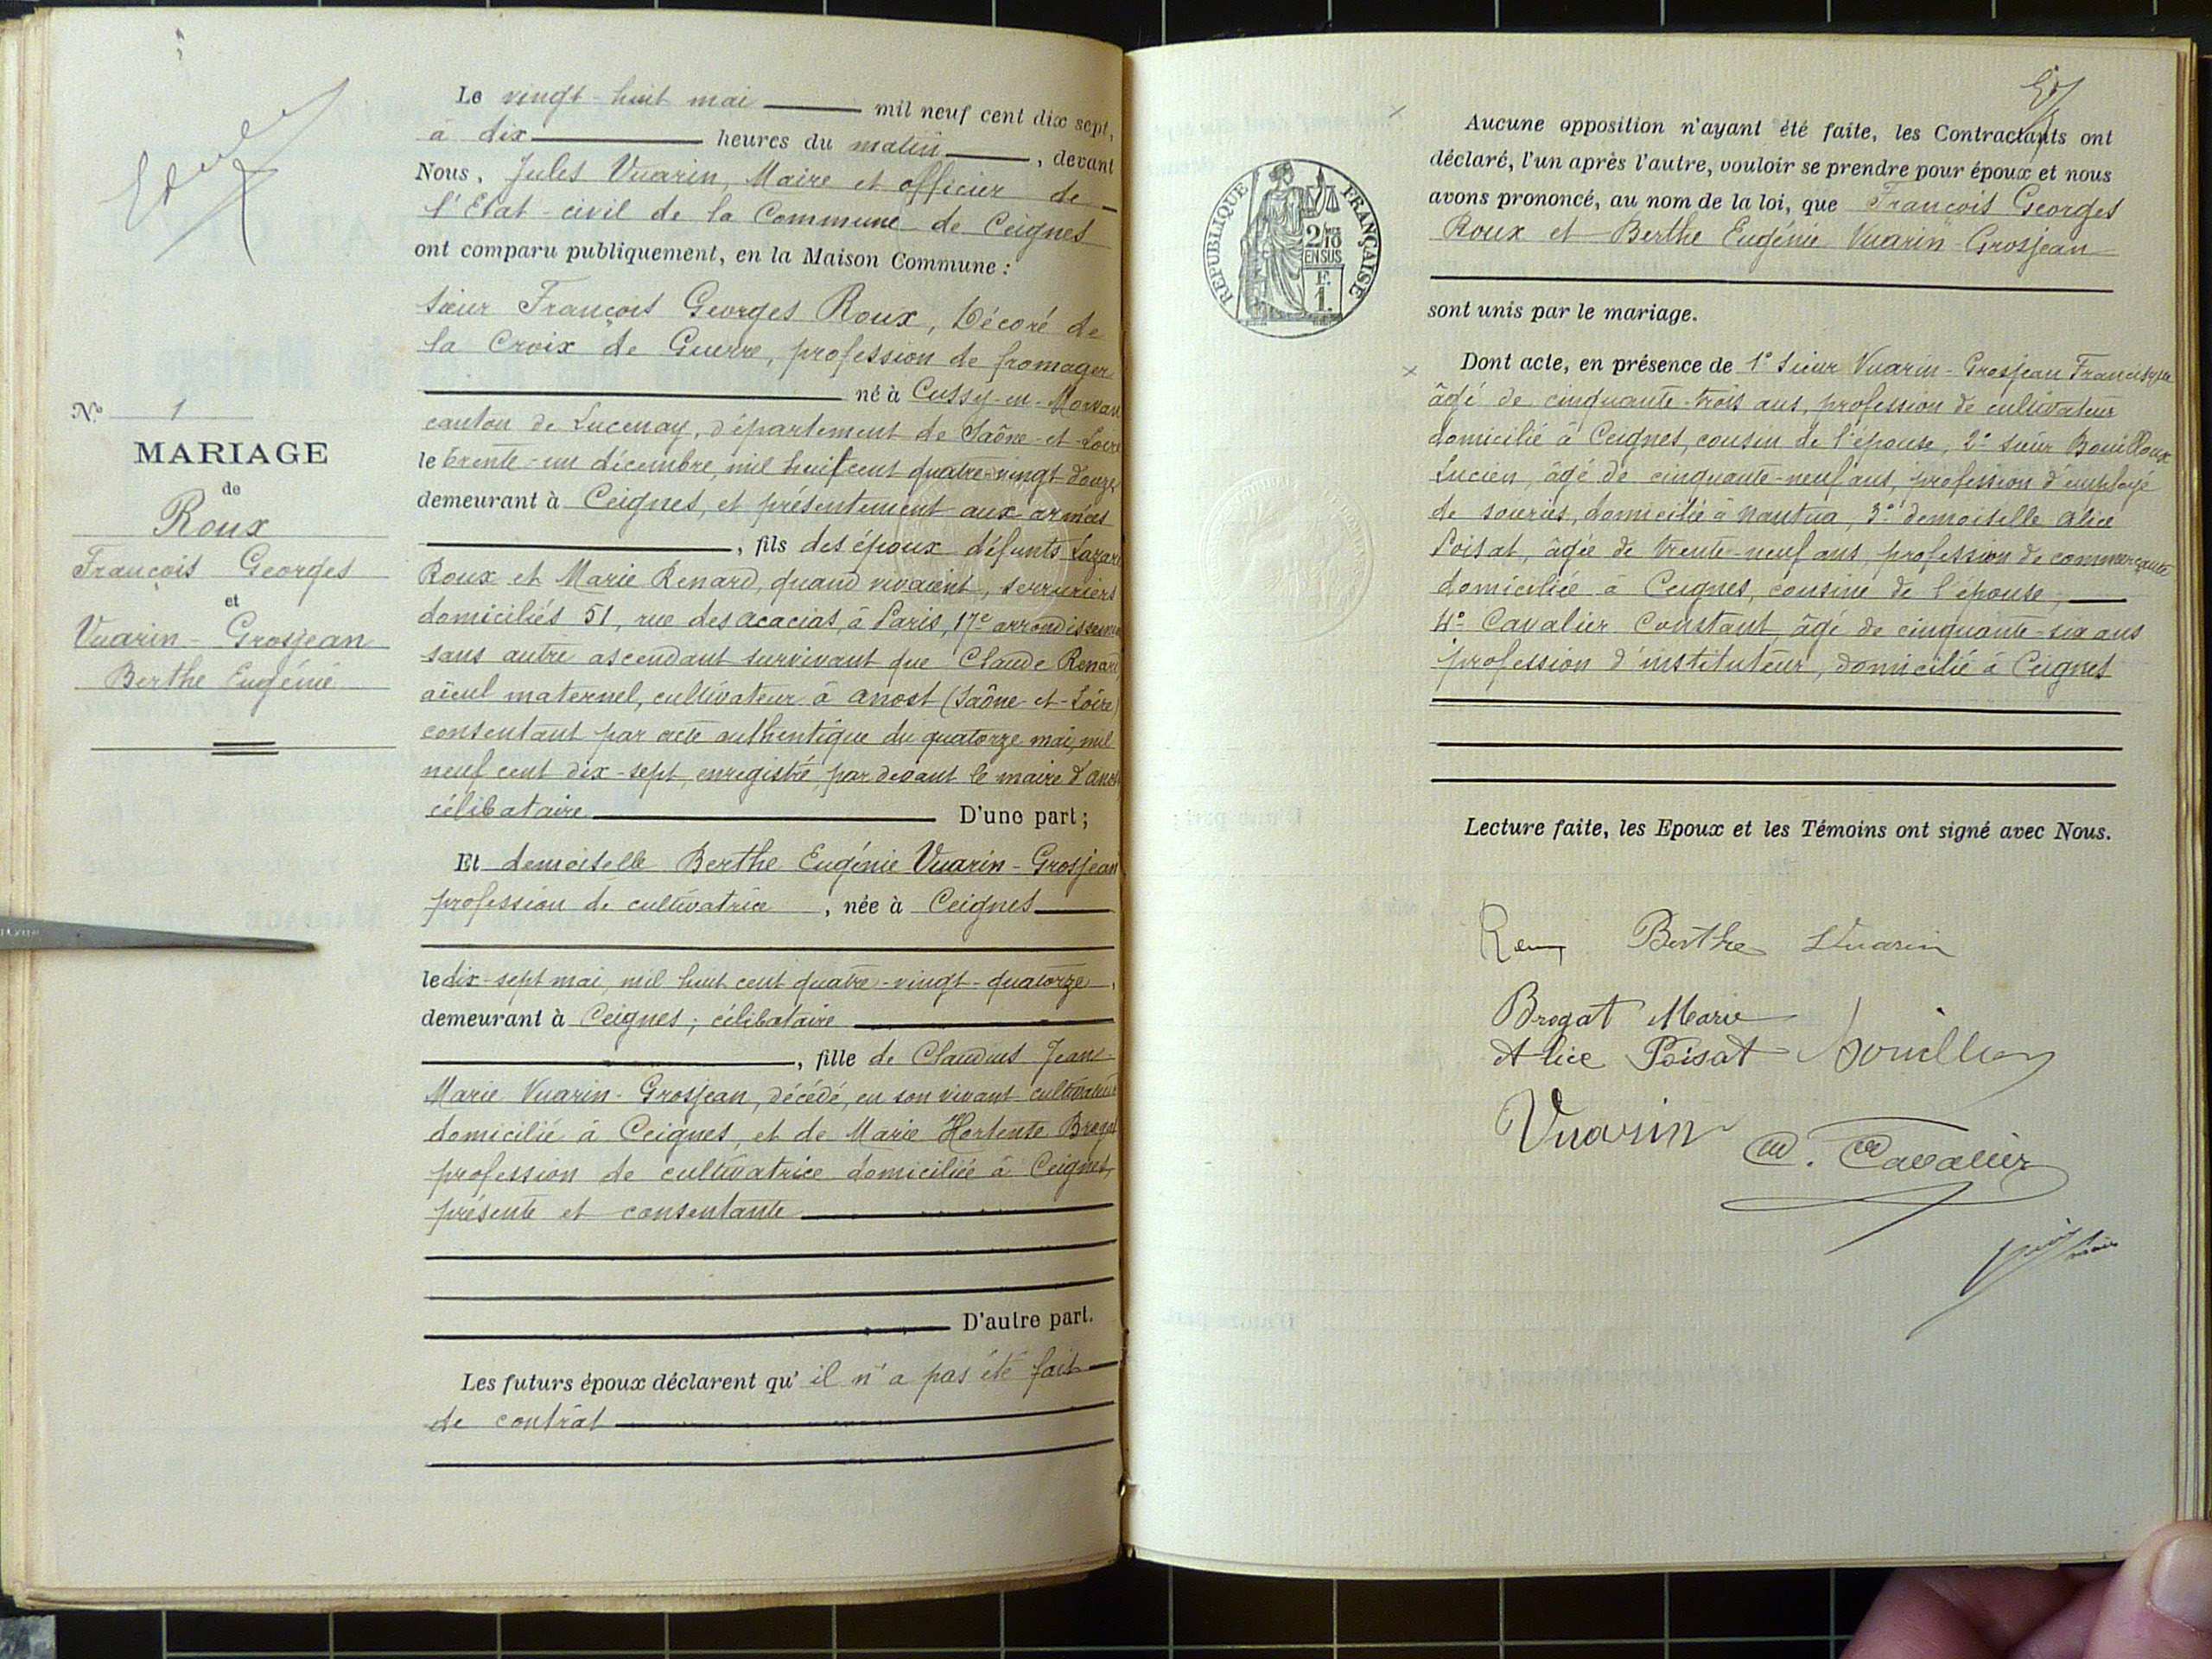 Le vingt-huit mai mil neuf cent dix sept,
à dix heures du matin, devant
Nous, Jules Vuarin, Maire et officier de
l'Etat-civil de la Commune de Ceignes
ont comparu publiquement, en la Maison Commune :
Sieur François Georges Roux, Décoré de
la Croix de Guerre, profession de fromager
né à Cussy-en-Morvan
canton de Lucenay, département de Saône-et-Loire
le trente-un décembre, mil huit cent quatre-vingt douze
demeurant à Ceignes, et présentement aux armées
, fils des époux défunts Lazare
Roux et Marie Renard, quand vivaient, serruriers
domiciliés 51, rue des acacias, à Paris, 17e arrondissement
sans autre ascendant survivant que Claude Renard
aïeul maternel, cultivateur à Anost (Saône-et-Loire)
consentant par acte authentique du quatorze mai, mil
neuf cent dix-sept, enregistré par devant le maire d'Anost
célibataire D'une part ;
Et demoiselle Berthe Eugénie Vuarin-Grosjean
profession de cultivatrice, née à Ceignes
le dix-sept mai, mil huit cent quatre-vingt-quatorze,
demeurant à Ceignes ; célibataire
, fille de Claudius Jean
Marie Vuarin-Grosjean, décédé, en son vivant cultivateur
domicilié à Ceignes, et de Marie Hortense Brogat
profession de cultivatrice domiciliée à Ceignes,
présente et consentante
D'autre part.
Les futurs époux déclarent qu'il n'a pas été fait
de contrat
No 1
MARIAGE
de
Roux
François Georges
et
Vuarin-Grosjean
Berthe Eugénie
REPUBLIQUE FRANÇAISE
2/10
EN SUS
F.
1.
Aucune opposition n'ayant été faite, les Contractants ont
déclaré, l'un après l'autre, vouloir se prendre pour époux et nous
avons prononcé, au nom de la loi, que François Georges
Roux et Berthe Eugénie Vuarin-Grosjean
sont unis par le mariage.
Dont acte, en présence de 1° Sieur Vuarin-Grosjean
âgé de cinquante-trois ans, profession de cultivateur
domicilié à Ceignes, cousin de l'épouse, 2° sieur Bouilloux
Lucien, âgé de cinquante-neuf ans, profession d'employé
de domicilié à Nantua, 3° demoiselle Alice
Poisat, âgée de trente-neuf ans, profession de commerçante
domiciliée à Ceignes, cousine de l'épouse,
4° Cavalier Constant, âgé de cinquante-six ans
profession d'instituteur, domicilié à Ceignes
Lecture faite, les Epoux et les Témoins ont signé avec Nous.
Roux Berthe Vuarin
Brogat Marie
Alice Poisat Bouilloux
Vuarin C. Cavalier